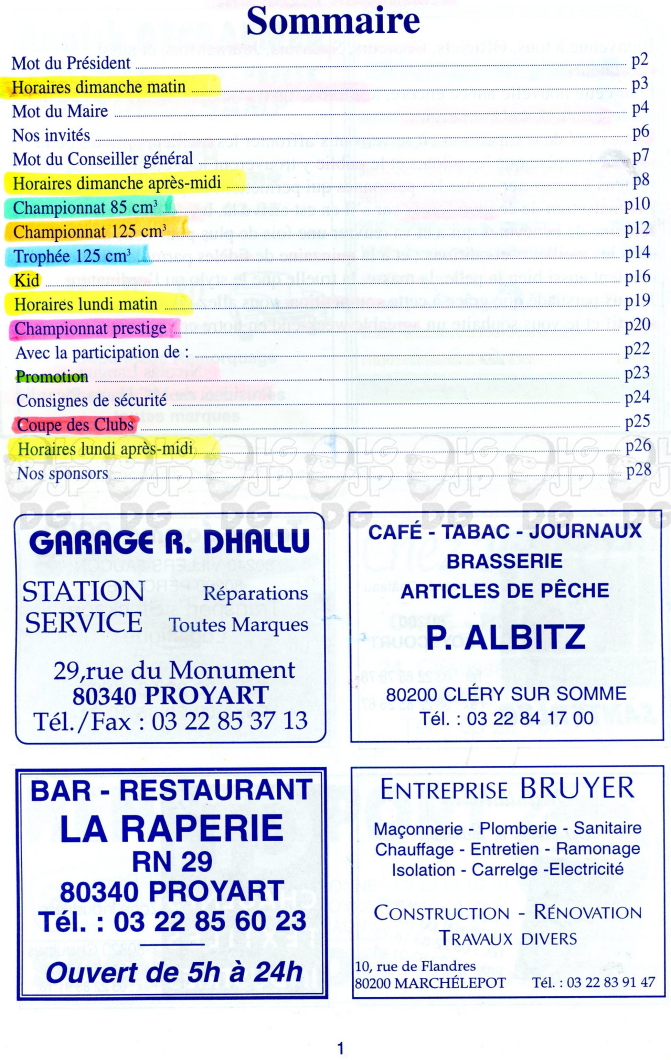 Sommaire
Mot du Président p2
Horaires dimanche matin p3
Mot du Maire p4
Nos invités p6
Mot du Conseiller général p7
Horaires dimanche après-midi p8
Championnat 85 cm³ p10
Championnat 125 cm³ p12
Trophée 125 cm³ p14
Kid p16
Horaires lundi matin p19
Championnat prestige p20
Avec la participation de : p22
Promotion p23
Consignes de sécurité p24
Coupe des Clubs p25
Horaires lundi après-midi p26
Nos sponsors p28
GARAGE R. DHALLU
STATION Réparations
SERVICE Toutes Marques
29,rue du Monument
80340 PROYART
Tél./Fax : 03 22 85 37 13
CAFÉ - TABAC - JOURNAUX
BRASSERIE
ARTICLES DE PÊCHE
P. ALBITZ
80200 CLÉRY SUR SOMME
Tél. : 03 22 84 17 00
BAR - RESTAURANT
LA RAPERIE
RN 29
80340 PROYART
Tél. : 03 22 85 60 23
Ouvert de 5h à 24h
ENTREPRISE BRUYER
Maçonnerie - Plomberie - Sanitaire
Chauffage - Entretien - Ramonage
Isolation - Carrelge -Electricité
CONSTRUCTION - RÉNOVATION
TRAVAUX DIVERS
10, rue de Flandres
80200 MARCHÉLEPOT Tél. : 03 22 83 91 47
1